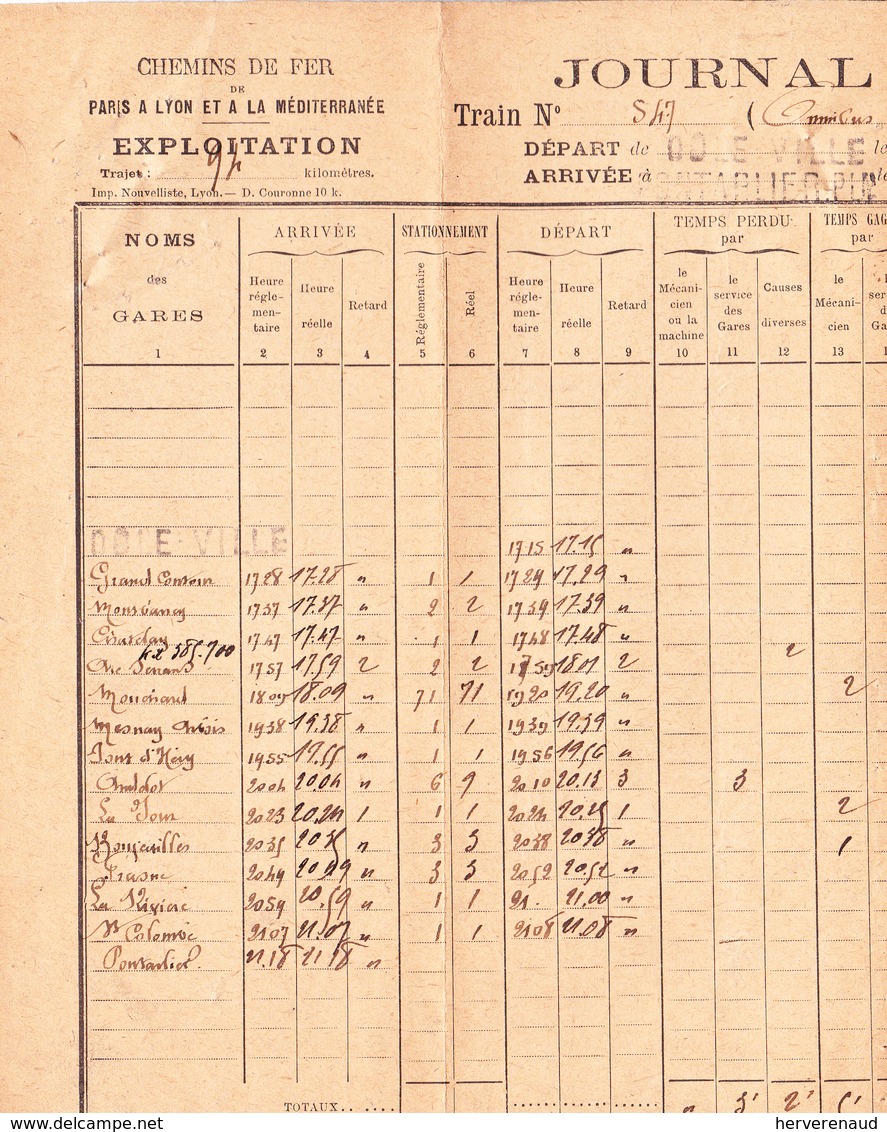 CHEMINS DE FER
DE
PARIS A LYON ET A LA MÉDITERRANÉE
EXPLOITATION
Trajet : 94 kilomètres.
Imp. Nouvelliste, Lyon. — D. Couronne 10 k.
JOURNAL
Train N° 547 ( Omnibus
DÉPART de DOLE-VILLE le
ARRIVÉE à PONTARLIER le
NOMS des GARES ARRIVÉE STATIONNEMENT DÉPART TEMPS PERDU par TEMPS GAG par
Heure réglementaire Heure réelle Retard Réglementaire Réel Heure réglementaire Heure réelle Retard le Mécanicien ou la machine le service des Gares Causes diverses le Mécanicien
1 2 3 4 5 6 7 8 9 10 11 12 13
DOLE-VILLE 17 15 17.15 "
Grand Contour 17 28 17.28 " 1 1 17 29 17.29 "
Montbarrey 17 37 17.37 " 2 2 17 39 17.39 "
17 47 17.47 " 1 1 17 48 17.48 "
Kx 385.700 2
Arc Senans 17 57 17.59 2 2 2 17 59 18.01 2
Mouchard 18 09 18.09 " 71 71 19 20 19.20 " 2
Mesnay Arbois 19 38 19.38 " 1 1 19 39 19.39 "
Pont d'Héry 19 55 19.55 " 1 1 19 56 19.56 "
Andelot 20 04 20.04 " 6 9 20 10 20.13 3 3
La Joux 20 23 20.24 1 1 1 20 24 20.25 1 2
Boujeailles 20 35 20 35 " 3 3 20 38 20 38 " 1
Frasne 20 49 20 49 " 3 3 20 52 20.52 "
La Rivière 20 59 20.59 " 1 1 21. 21.00 "
Ste Colombe 21 07 21.07 " 1 1 21 08 21.08 "
Pontarlier 21.18 21.18 "
TOTAUX.. .... " 3' 2' 5'
www.delcampe.net
herverenaud